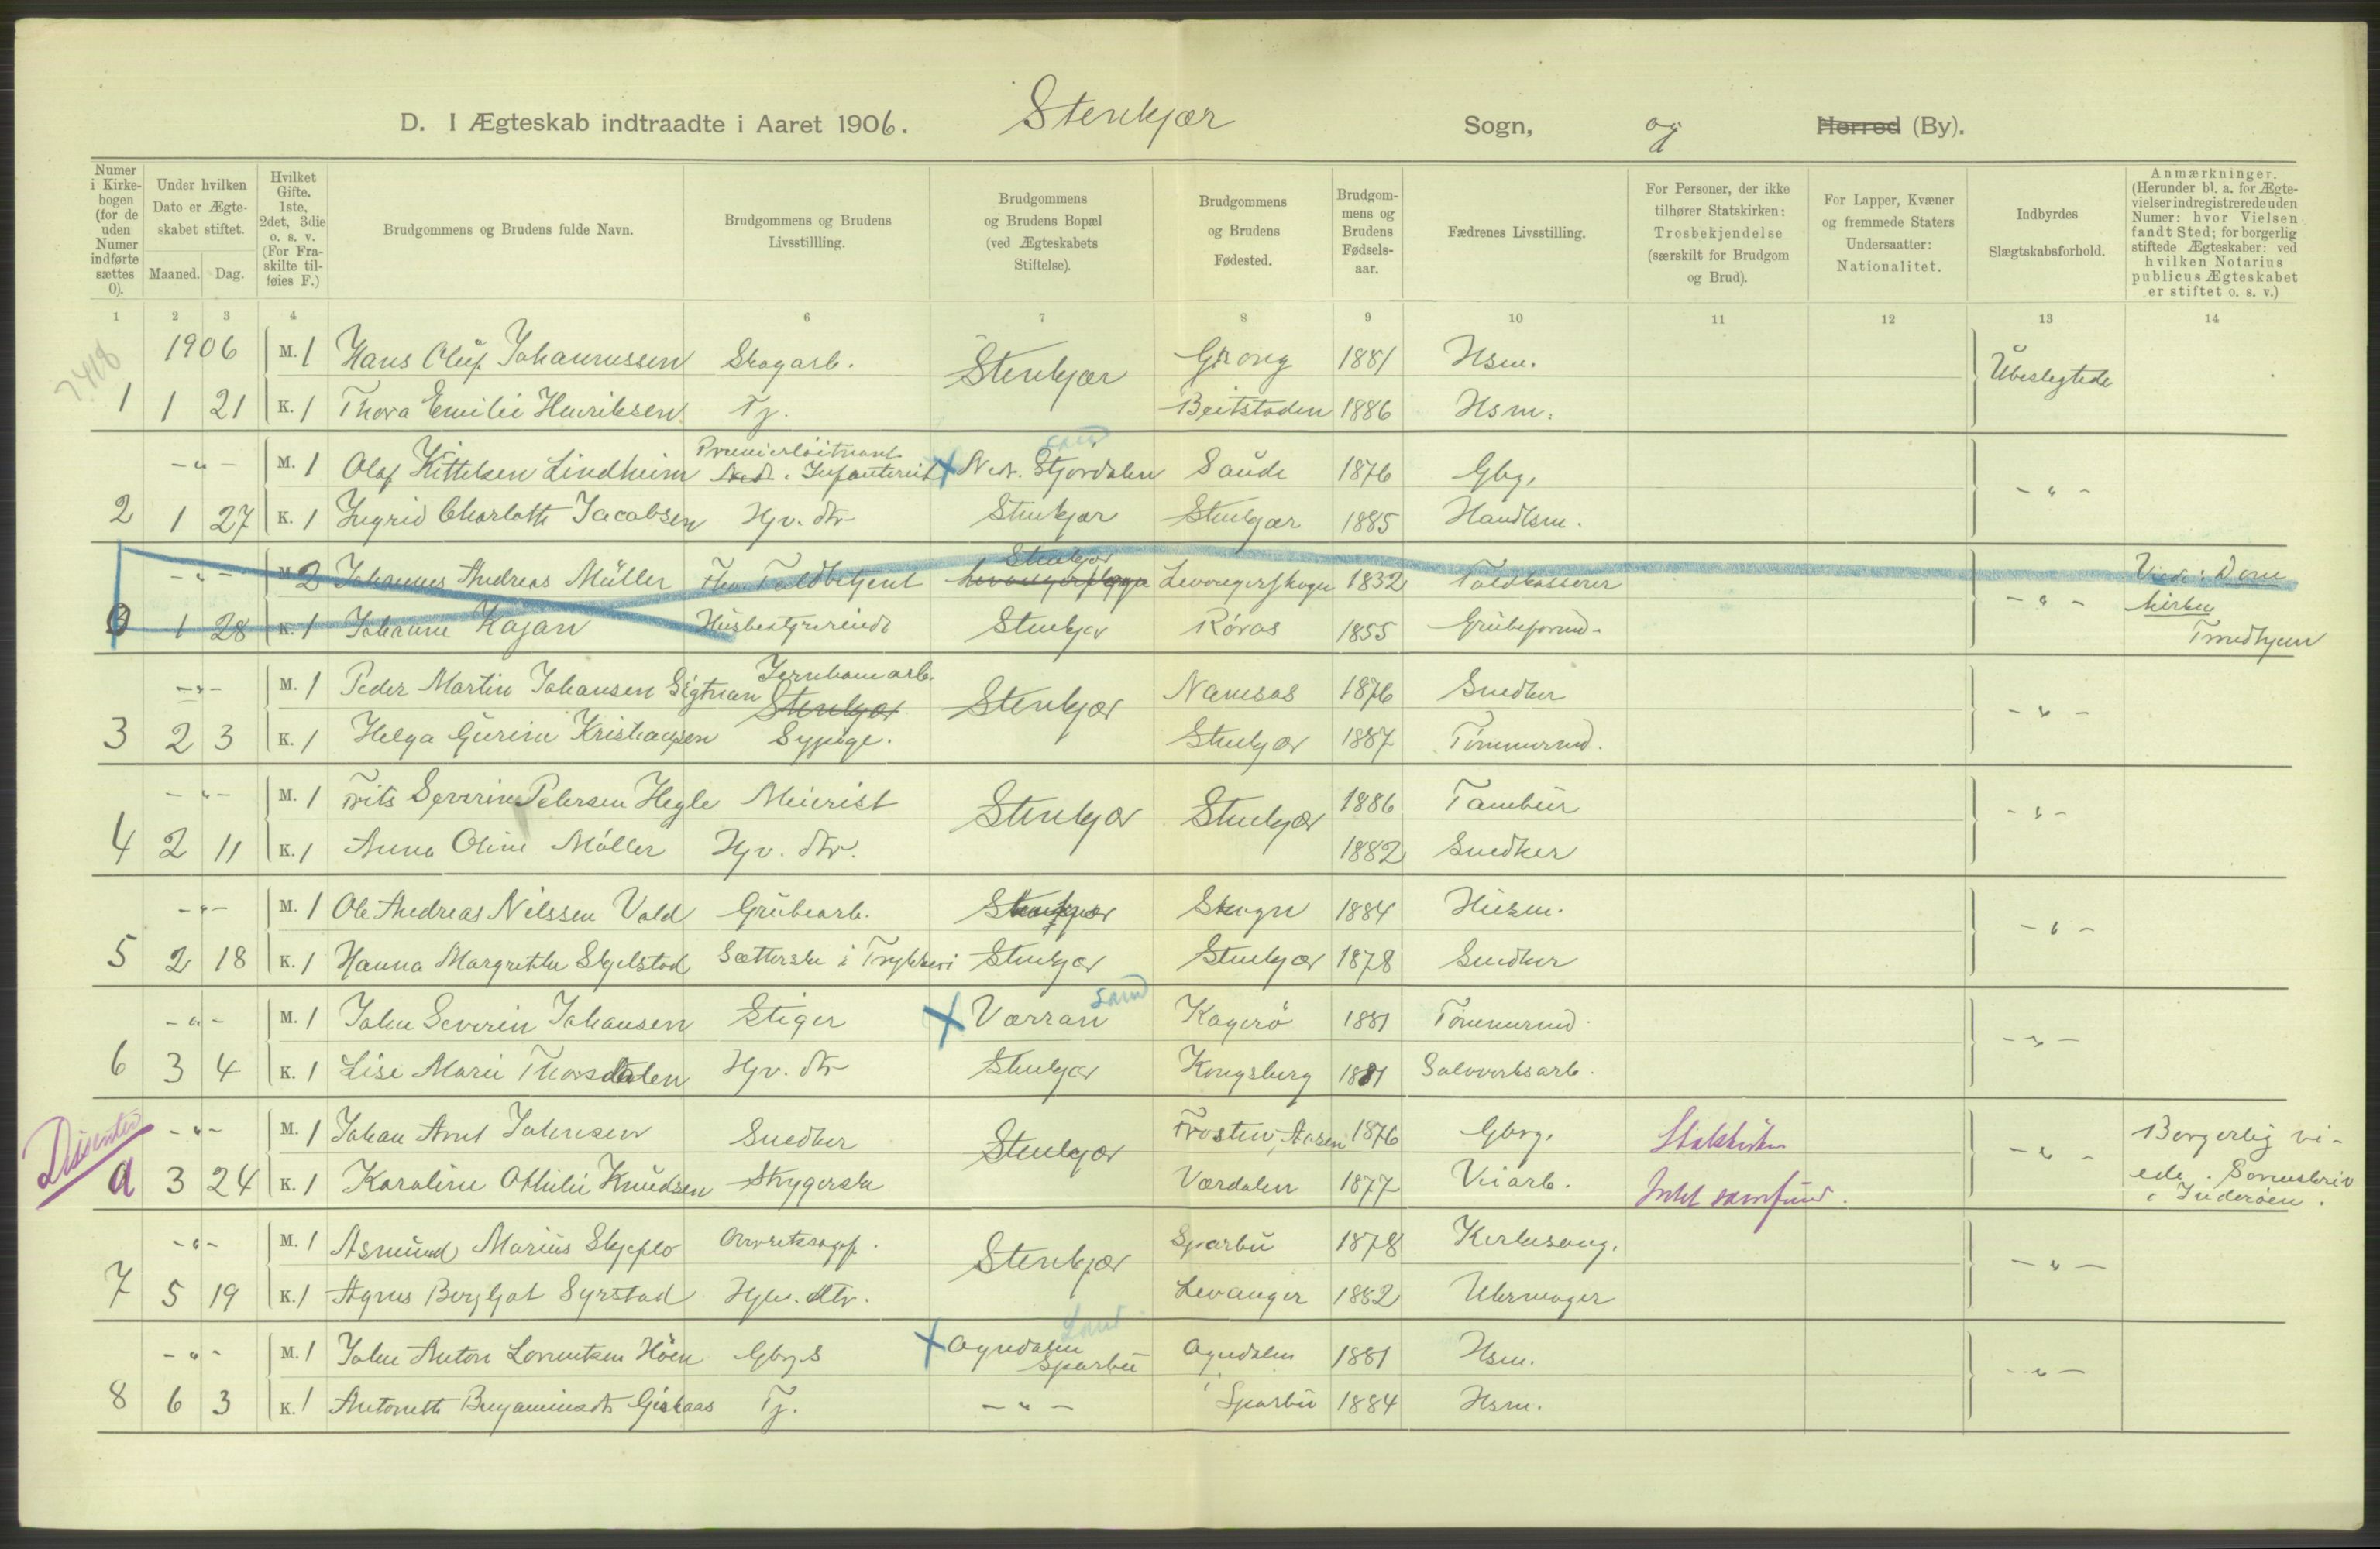 D. I Ægteskab indtraadte i Aaret 1906. Stenkjær Sogn, og Herred (By).
Numer i Kirkebogen (for de uden Numer indførte sættes 0).
Under hvilken Dato er Ægteskabet stiftet.
Maaned. Dag.
Hvilket Gifte. 1ste, 2det, 3die o. s. v. (For Fraskilte tilføies F.)
Brudgommens og Brudens fulde Navn.
Brudgommens og Brudens Livsstillling.
Brudgommens og Brudens Bopæl (ved Ægteskabets Stiftelse).
Brudgommens og Brudens Fødested.
Brudgommens og Brudens Fødselsaar.
Fædrenes Livsstilling.
For Personer, der ikke tilhører Statskirken: Trosbekjendelse (særskilt for Brudgom og Brud).
For Lapper, Kvæner og fremmede Staters Undersaatter: Nationalitet.
Indbyrdes Slægtskabsforhold.
Anmærkninger. (Herunder bl. a. for Ægtevielser indregistrerede uden Numer: hvor Vielsen fandt Sted; for borgerlig stiftede Ægteskaber: ved hvilken Notarius publicus Ægteskabet er stiftet o. s. v.)
1 2 3 4 6 7 8 9 10 11 12 13 14
1906 M. 1 Hans Oluf Johannessen Skogarb. Stenkjær Grong 1881 Hsm. Ubeslegtede
1 1 21 K. 1 Thora Emilie Henriksen Tj. Beitstaden 1886 Hsm.
-"- M. 1 Olaf Kittelsen Lindheim Premierløitnant Infanteriet X Ned. Stjørdalen Land Saude 1876 Gbg. -"-
2 1 27 K. 1 Ingrid Charlotte Jacobsen Hjv. dtr Stenkjær Stenkjær 1885 Handlsm.
-"- M. 2 Johannes Andreas Müller Toldbetjent Stenkjær Levangerskogn Levangerskogn 1832 Toldkasserer -"- Viede i Dom
0 1 28 K. 1 Johanne Kajan Husbestyrerinde Stenkjær Røros 1855 Grubeformd. kirken Trondhjem
-"- M. 1 Peder Martin Johansen Sigtnan Jernbanearb. Stenkjær Stenkjær Namsos 1876 Snedker -"-
3 2 3 K. 1 Helga Gurine Kristiansen Sypige. Stenkjær 1887 Tømmermd.
-"- M. 1 Frits Severin Petersen Hegle Meierist Stenkjær Stenkjær 1886 Tambur -"-
4 2 11 K. 1 Anna Oline Møller Hjv. dtr. 1882 Snedker
-"- M. 1 Ole Andreas Nilssen Vold Grubearb. Stenkjær Skogn 1884 Husm. -"-
5 2 18 K. 1 Hanna Margrethe Skjelstad Sætterske i Trykkeri Stenkjær Stenkjær 1878 Snedker
-"- M. 1 John Severin Johansen Stiger X Værran Land Kragerø 1881 Tømmermd. -"-
6 3 4 K. 1 Lise Marie Thorsdalen Hjv. dtr Stenkjær Kongsberg 1881 Sølvverksarb.
Disenter -"- M. 1 Johan Arnt Johnsen Snedker Stenkjær Frosten, Aasen 1876 Gbrg. Statskirken -"- Borgerlig vi-
a 3 24 K. 1 Karoline Othilie Knudsen Strygerske Værdalen 1877 Veiarb. Intet samfund. ede. Sorenskriv i Inderøen.
-"- M. 1 Asmund Marius Skjeflo Overretssagf. Stenkjær Sparbu 1878 Kirkesang. -"-
7 5 19 K. 1 Agnes Bergljot Syrstad Hjv. dtr. Levanger 1882 Uhrmager
-"- M. 1 John Anton Lorentsen Höen Gbr. S X Ogndalen Land Sparbu Ogndalen 1881 Hsm. -"-
8 6 3 K. 1 Antonette Benjaminsdtr Giskaas Tj. -"- Sparbu 1884 Hsm.